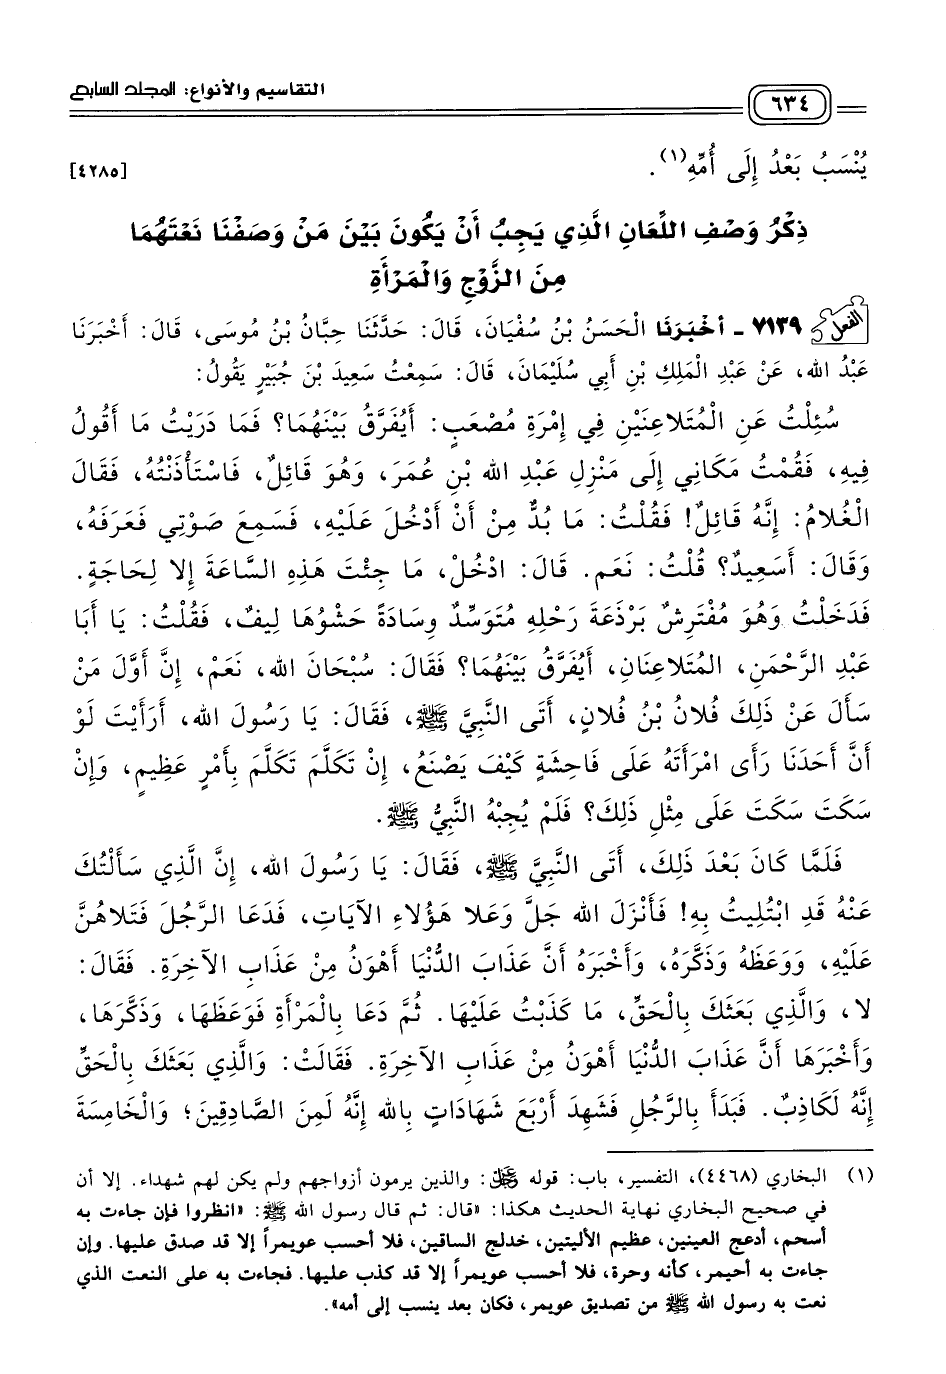 ٦٣٤
التقاسيم والأنواع: المجلد السابع
يُنْسَبُ بَعْدُ إِلَى أُمِّهِ(١). [٤٢٨٥]
ذِكْرُ وَصْفِ اللِّعَانِ الَّذِي يَجِبُ أَنْ يَكُونَ بَيْنَ مَنْ وَصَفْنَا نَعْتَهُمَا
مِنَ الزَّوْجِ وَالْمَرْأَةِ
الفعل ٧١٣٩ - أَخْبَرَنَا الْحَسَنُ بْنُ سُفْيَانَ، قَالَ: حَدَّثَنَا حِبَّانُ بْنُ مُوسَى، قَالَ: أَخْبَرَنَا
عَبْدُ الله، عَنْ عَبْدِ الْمَلِكِ بْنِ أَبِي سُلَيْمَانَ، قَالَ: سَمِعْتُ سَعِيدَ بْنَ جُبَيْرٍ يَقُولُ:
سُئِلْتُ عَنِ الْمُتَلاعِنَيْنِ فِي إِمْرَةِ مُصْعَبٍ: أَيُفَرَّقُ بَيْنَهُمَا؟ فَمَا دَرَيْتُ مَا أَقُولُ
فِيهِ، فَقُمْتُ مَكَانِي إِلَى مَنْزِلِ عَبْدِ الله بْنِ عُمَرَ، وَهُوَ قَائِلٌ، فَاسْتَأْذَنْتُهُ، فَقَالَ
الْغُلامُ: إِنَّهُ قَائِلٌ! فَقُلْتُ: مَا بُدٌّ مِنْ أَنْ أَدْخُلَ عَلَيْهِ، فَسَمِعَ صَوْتِي فَعَرَفَهُ،
وَقَالَ: أَسَعِيدٌ؟ قُلْتُ: نَعَم. قَالَ: ادْخُلْ، مَا جِئْتَ هَذِهِ السَّاعَةَ إِلا لِحَاجَةٍ.
فَدَخَلْتُ وَهُوَ مُفْتَرِشٌ بَرْذَعَةَ رَحْلِهِ مُتَوَسِّدٌ وِسَادَةً حَشْوُهَا لِيف، فَقُلْتُ: يَا أَبَا
عَبْدِ الرَّحْمَنِ، المُتَلاعِنَانِ، أَيُفَرَّقُ بَيْنَهُمَا؟ فَقَالَ: سُبْحَانَ الله، نَعَمْ، إِنَّ أَوَّلَ مَنْ
سَأَلَ عَنْ ذَلِكَ فُلانُ بْنُ فُلانٍ، أَتَى النَّبِيَّ ﷺ، فَقَالَ: يَا رَسُولَ الله، أَرَأَيْتَ لَوْ
أَنَّ أَحَدَنَا رَأَى امْرَأَتَهُ عَلَى فَاحِشَةٍ كَيْفَ يَصْنَعُ، إِنْ تَكَلَّمَ تَكَلَّمَ بِأَمْرٍ عَظِيمٍ، وَإِنْ
سَكَتَ سَكَتَ عَلَى مِثْلِ ذَلِكَ؟ فَلَمْ يُجِبْهُ النَّبِيُّ ﷺ.
فَلَمَّا كَانَ بَعْدَ ذَلِكَ، أَتَى النَّبِيَّ ﷺ، فَقَالَ: يَا رَسُولَ الله، إِنَّ الَّذِي سَأَلْتُكَ
عَنْهُ قَدِ ابْتُلِيتُ بِهِ! فَأَنْزَلَ الله جَلَّ وَعَلا هَؤُلاءِ الآيَاتِ، فَدَعَا الرَّجُلَ فَتَلاهُنَّ
عَلَيْهِ، وَوَعَظَهُ وَذَكَّرَهُ، وَأَخْبَرَهُ أَنَّ عَذَابَ الدُّنْيَا أَهْوَنُ مِنْ عَذَابِ الآخِرَةِ. فَقَالَ:
لا، وَالَّذِي بَعَثَكَ بِالْحَقِّ، مَا كَذَبْتُ عَلَيْهَا. ثُمَّ دَعَا بِالْمَرْأَةِ فَوَعَظَهَا، وَذَكَّرَهَا،
وَأَخْبَرَهَا أَنَّ عَذَابَ الدُّنْيَا أَهْوَنُ مِنْ عَذَابِ الآخِرَةِ. فَقَالَتْ: وَالَّذِي بَعَثَكَ بِالْحَقِّ
إِنَّهُ لَكَاذِبٌ. فَبَدَأَ بِالرَّجُلِ فَشَهِدَ أَرْبَعَ شَهَادَاتٍ بِالله إِنَّهُ لَمِنَ الصَّادِقِينَ؛ وَالْخَامِسَةَ
(١) البخاري (٤٤٦٨)، التفسير، باب: قوله ﷻ: والذين يرمون أزواجهم ولم يكن لهم شهداء. إلا أن
في صحيح البخاري نهاية الحديث هكذا: «قال: ثم قال رسول الله ﷺ: «انظروا فإن جاءت به
أسحم، أدعج العينين، عظيم الأليتين، خدلج الساقين، فلا أحسب عويمراً إلا قد صدق عليها. وإن
جاءت به أحيمر، كأنه وحرة، فلا أحسب عويمراً إلا قد كذب عليها. فجاءت به على النعت الذي
نعت به رسول الله ﷺ من تصديق عويمر، فكان بعد ينسب إلى أمه».